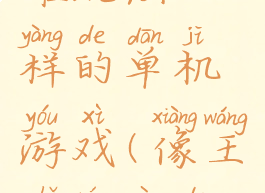 yàng de dān jī
样的单机
yóu xì xiàng wáng
游戏(像王